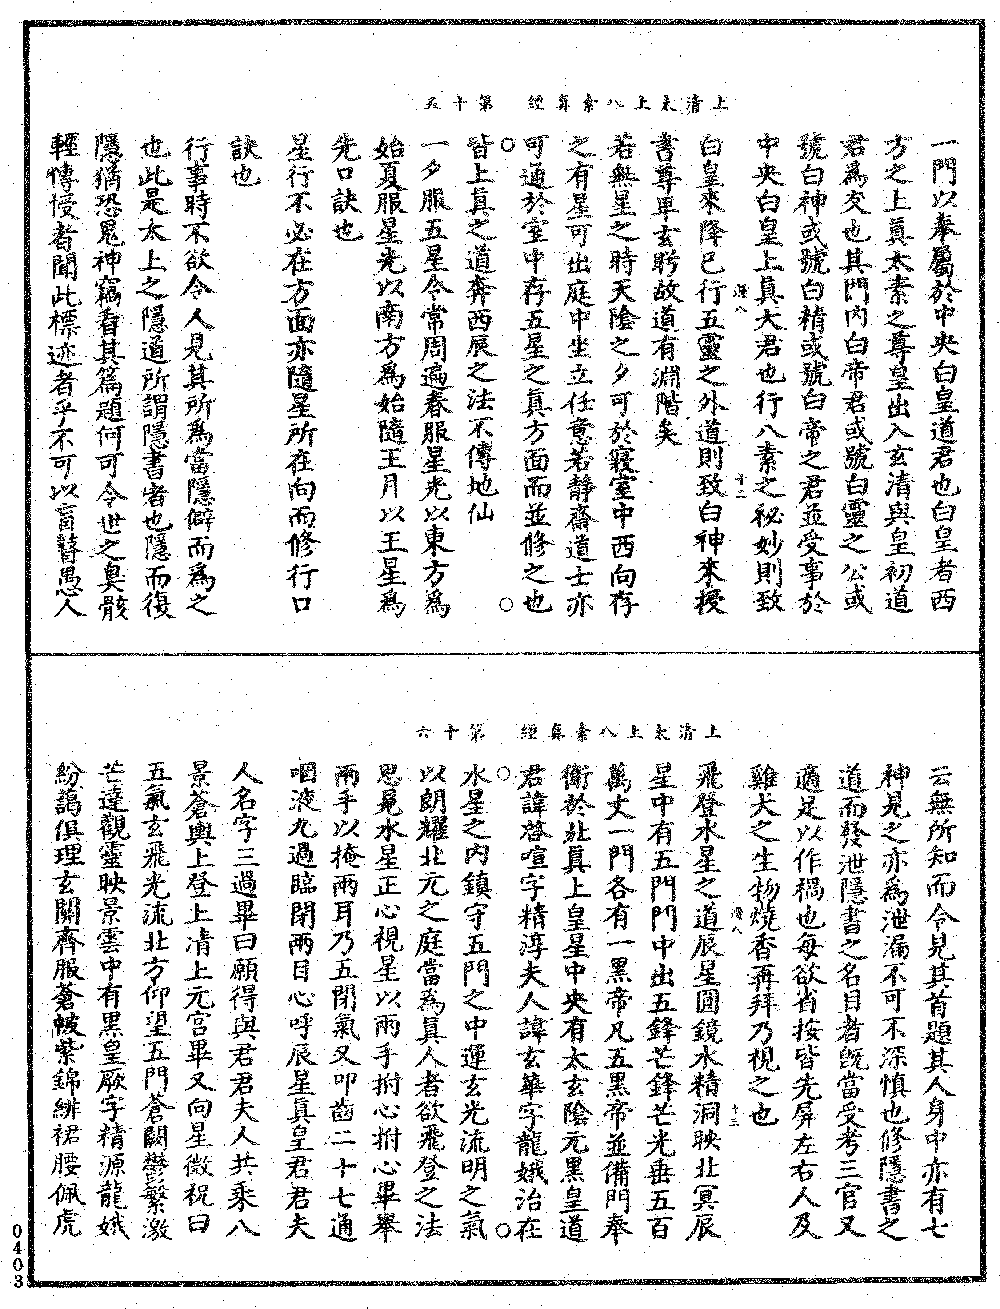 上清太上八素真經　第十五
一門以奉屬於中央白皇道君也白皇者西
方之上真太素之尊皇出入玄清與皇初道
君為友也其門內白帝君或號白靈之公或
號白神或號白精或號白帝之君並受事於
中央白皇上真大君也行八素之秘妙則致
白皇來降已行五靈之外道則致白神來授
書尊卑玄眄故道有淵階矣
若無星之時天陰之夕可於寢室中西向存
之有星可出庭中坐立任意若靜齋道士亦
可通於室中存五星之真方面而並修之也
皆上真之道奔西辰之法不傳地仙
一夕服五星令常周遍春服星光以東方為
始夏服星光以南方為始隨王月以王星為
先口訣也
星行不必在方面亦隨星所在向而修行口
訣也
行事時不欲令人見其所為當隱僻而為之
也此是太上之隱道所謂隱書者也隱而復
隱猶恐鬼神竊看其篇題何可令世之臭骸
輕傳侵者聞此標迹者乎不可以盲瞽愚人
上清太上八素真經　第十六
云無所知而令見其首題其人身中亦有七
神見之亦為泄漏不可不深慎也修隱書之
道而發泄隱書之名目者既當受考三官又
適足以作禍也每欲省按皆先屏左右人及
雞犬之生物燒香再拜乃視之也
飛登水星之道辰星圓鏡水精洞映北冥辰
星中有五門門中出五鋒芒鋒芒光垂五百
萬丈一門各有一黑帝凡五黑帝並備門奉
衛於北真上皇星中央有太玄陰元黑皇道
君諱啓喧字精淳夫人諱玄華字龍娥治在
水星之內鎮守五門之中運玄光流明之氣
以朗耀北元之庭當為真人者欲飛登之法
思見水星正心視星以兩手拊心拊心畢舉
兩手以掩兩耳乃五閉氣又叩齒二十七通
咽液九過臨閉兩目心呼辰星真皇君君夫
人名字三過畢曰願得與君君夫人共乘八
景蒼輿上登上清上元宮畢又向星微祝曰
五氣玄飛光流北方仰望五門蒼闕鬱繁激
芒達觀靈映景雲中有黑皇厥字精源龍娥
紛藹俱理玄關齊服蒼帔紫錦緋裙腰佩虎
0403